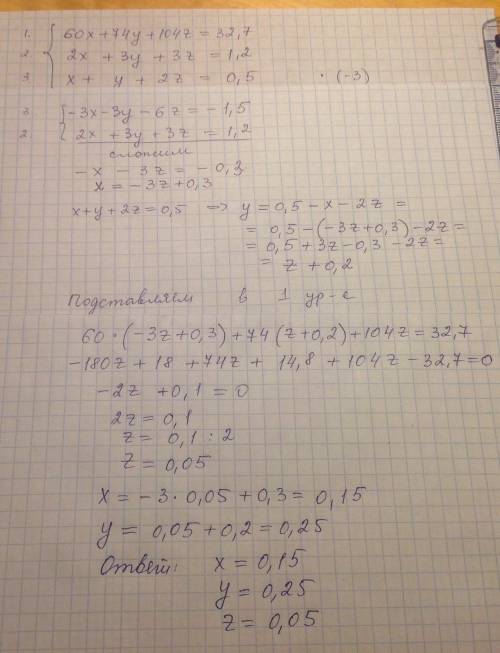 1. 60x+74y+104z=32,7
2. 2x +3y +3z =1,2
3 x+ y + 2z = 0,5 · (-3)
3. -3x-3y-6z=-1,5
2. 2x +3y+3z =1,2
сложим
-x - 3z = -0,3
x=-3z+0,3
x+y+2z=0,5 => y=0,5-x-2z =
= 0,5-(-3z+0,3)-2z=
= 0,5+3z-0,3-2z=
= z+0,2
Подставляем в 1 ур-е
60·(-3z+0,3)+74(z+0,2)+104z=32,7
-180z+18+74z+14,8+104z-32,7=0
-2z+0,1=0
2z=0,1
z=0,1:2
z=0,05
x=-3·0,05+0,3=0,15
y=0,05+0,2=0,25
Ответ: x=0,15
y=0,25
z=0,05